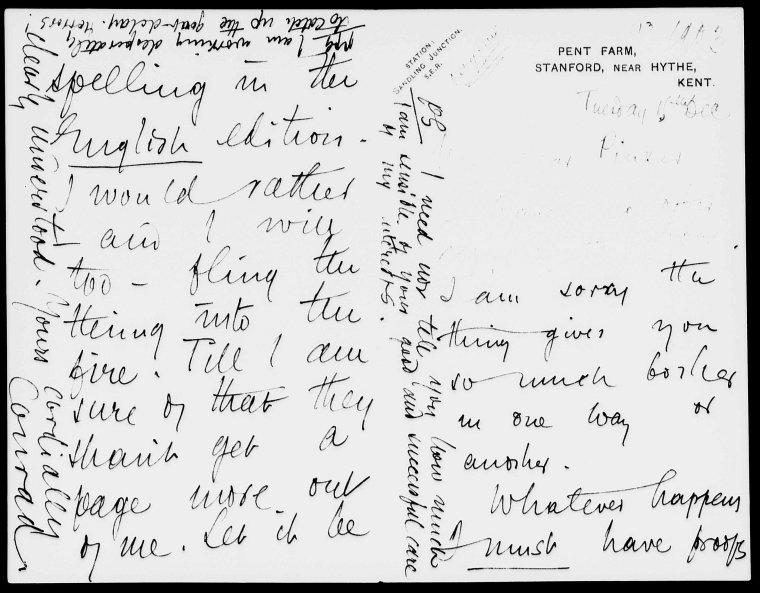 PENT FARM,
STANFORD, NEAR HYTHE,
KENT.
STATION:
SANDLING JUNCTION.
S.E.R.
Tuesday Dec
Pinker
I am sorry the
thing gives you
so much bother
in one way or
another.
Whatever happens
I must have proofs
spelling in the
English edition.
I would rather
and I will
too – fling the
thing into the
fire. Till I am
sure of that they
shan't get a
page more out
of me. Let it be
clearly understood. Yours cordially
Conrad
PS I need not tell you how much
I am sensible of your good and successful care
of my interests.
I am working desperately
to catch up the delay. Horrors!